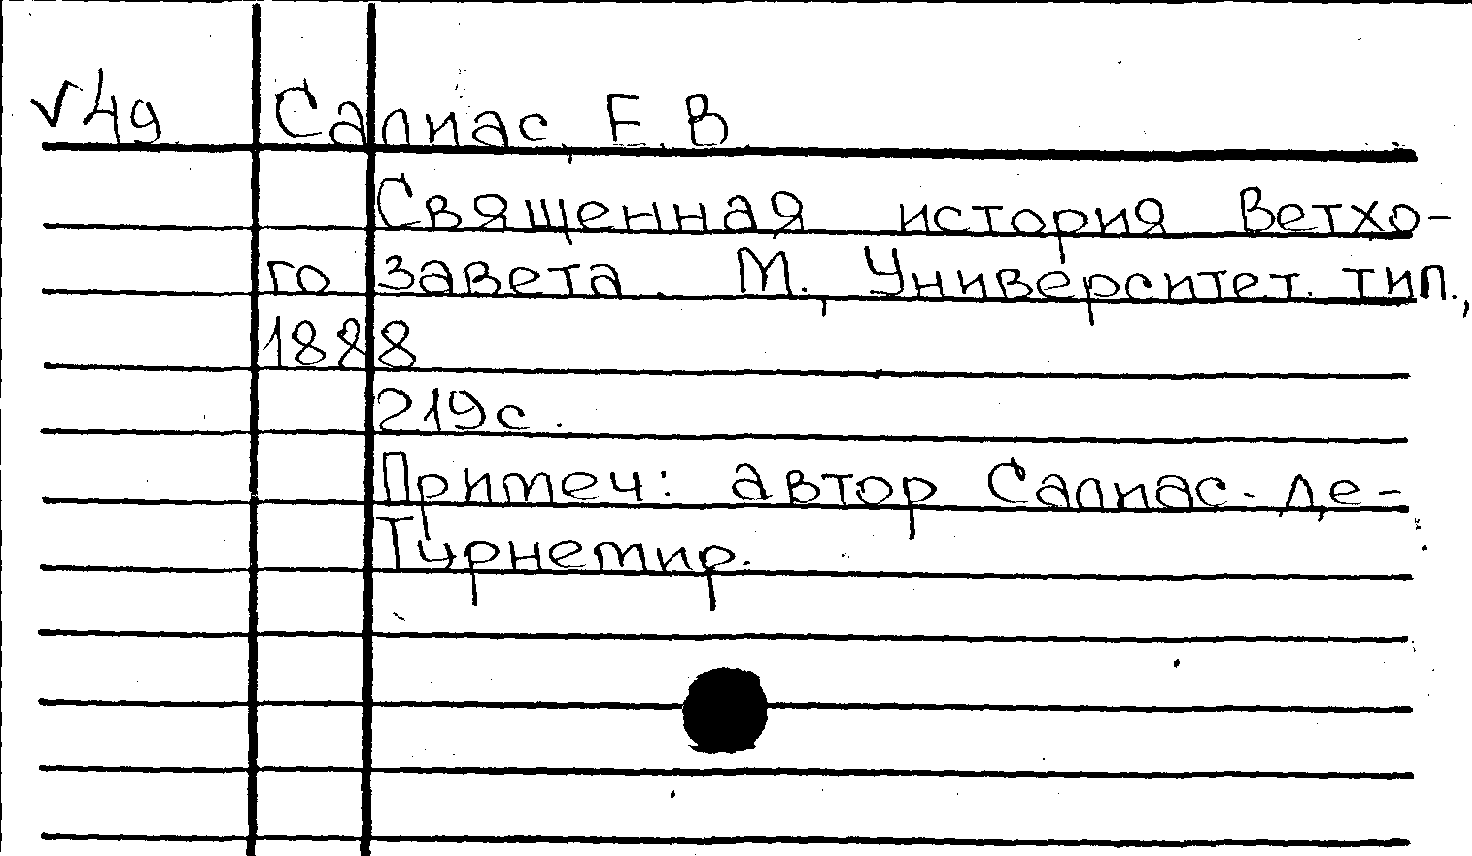 √49 Салиас, Е.В.
Священная история Ветхо-
го завета. М., Университет. тип.,
1888
219с.
Примеч: автор Салиас-де-
Турнемир.